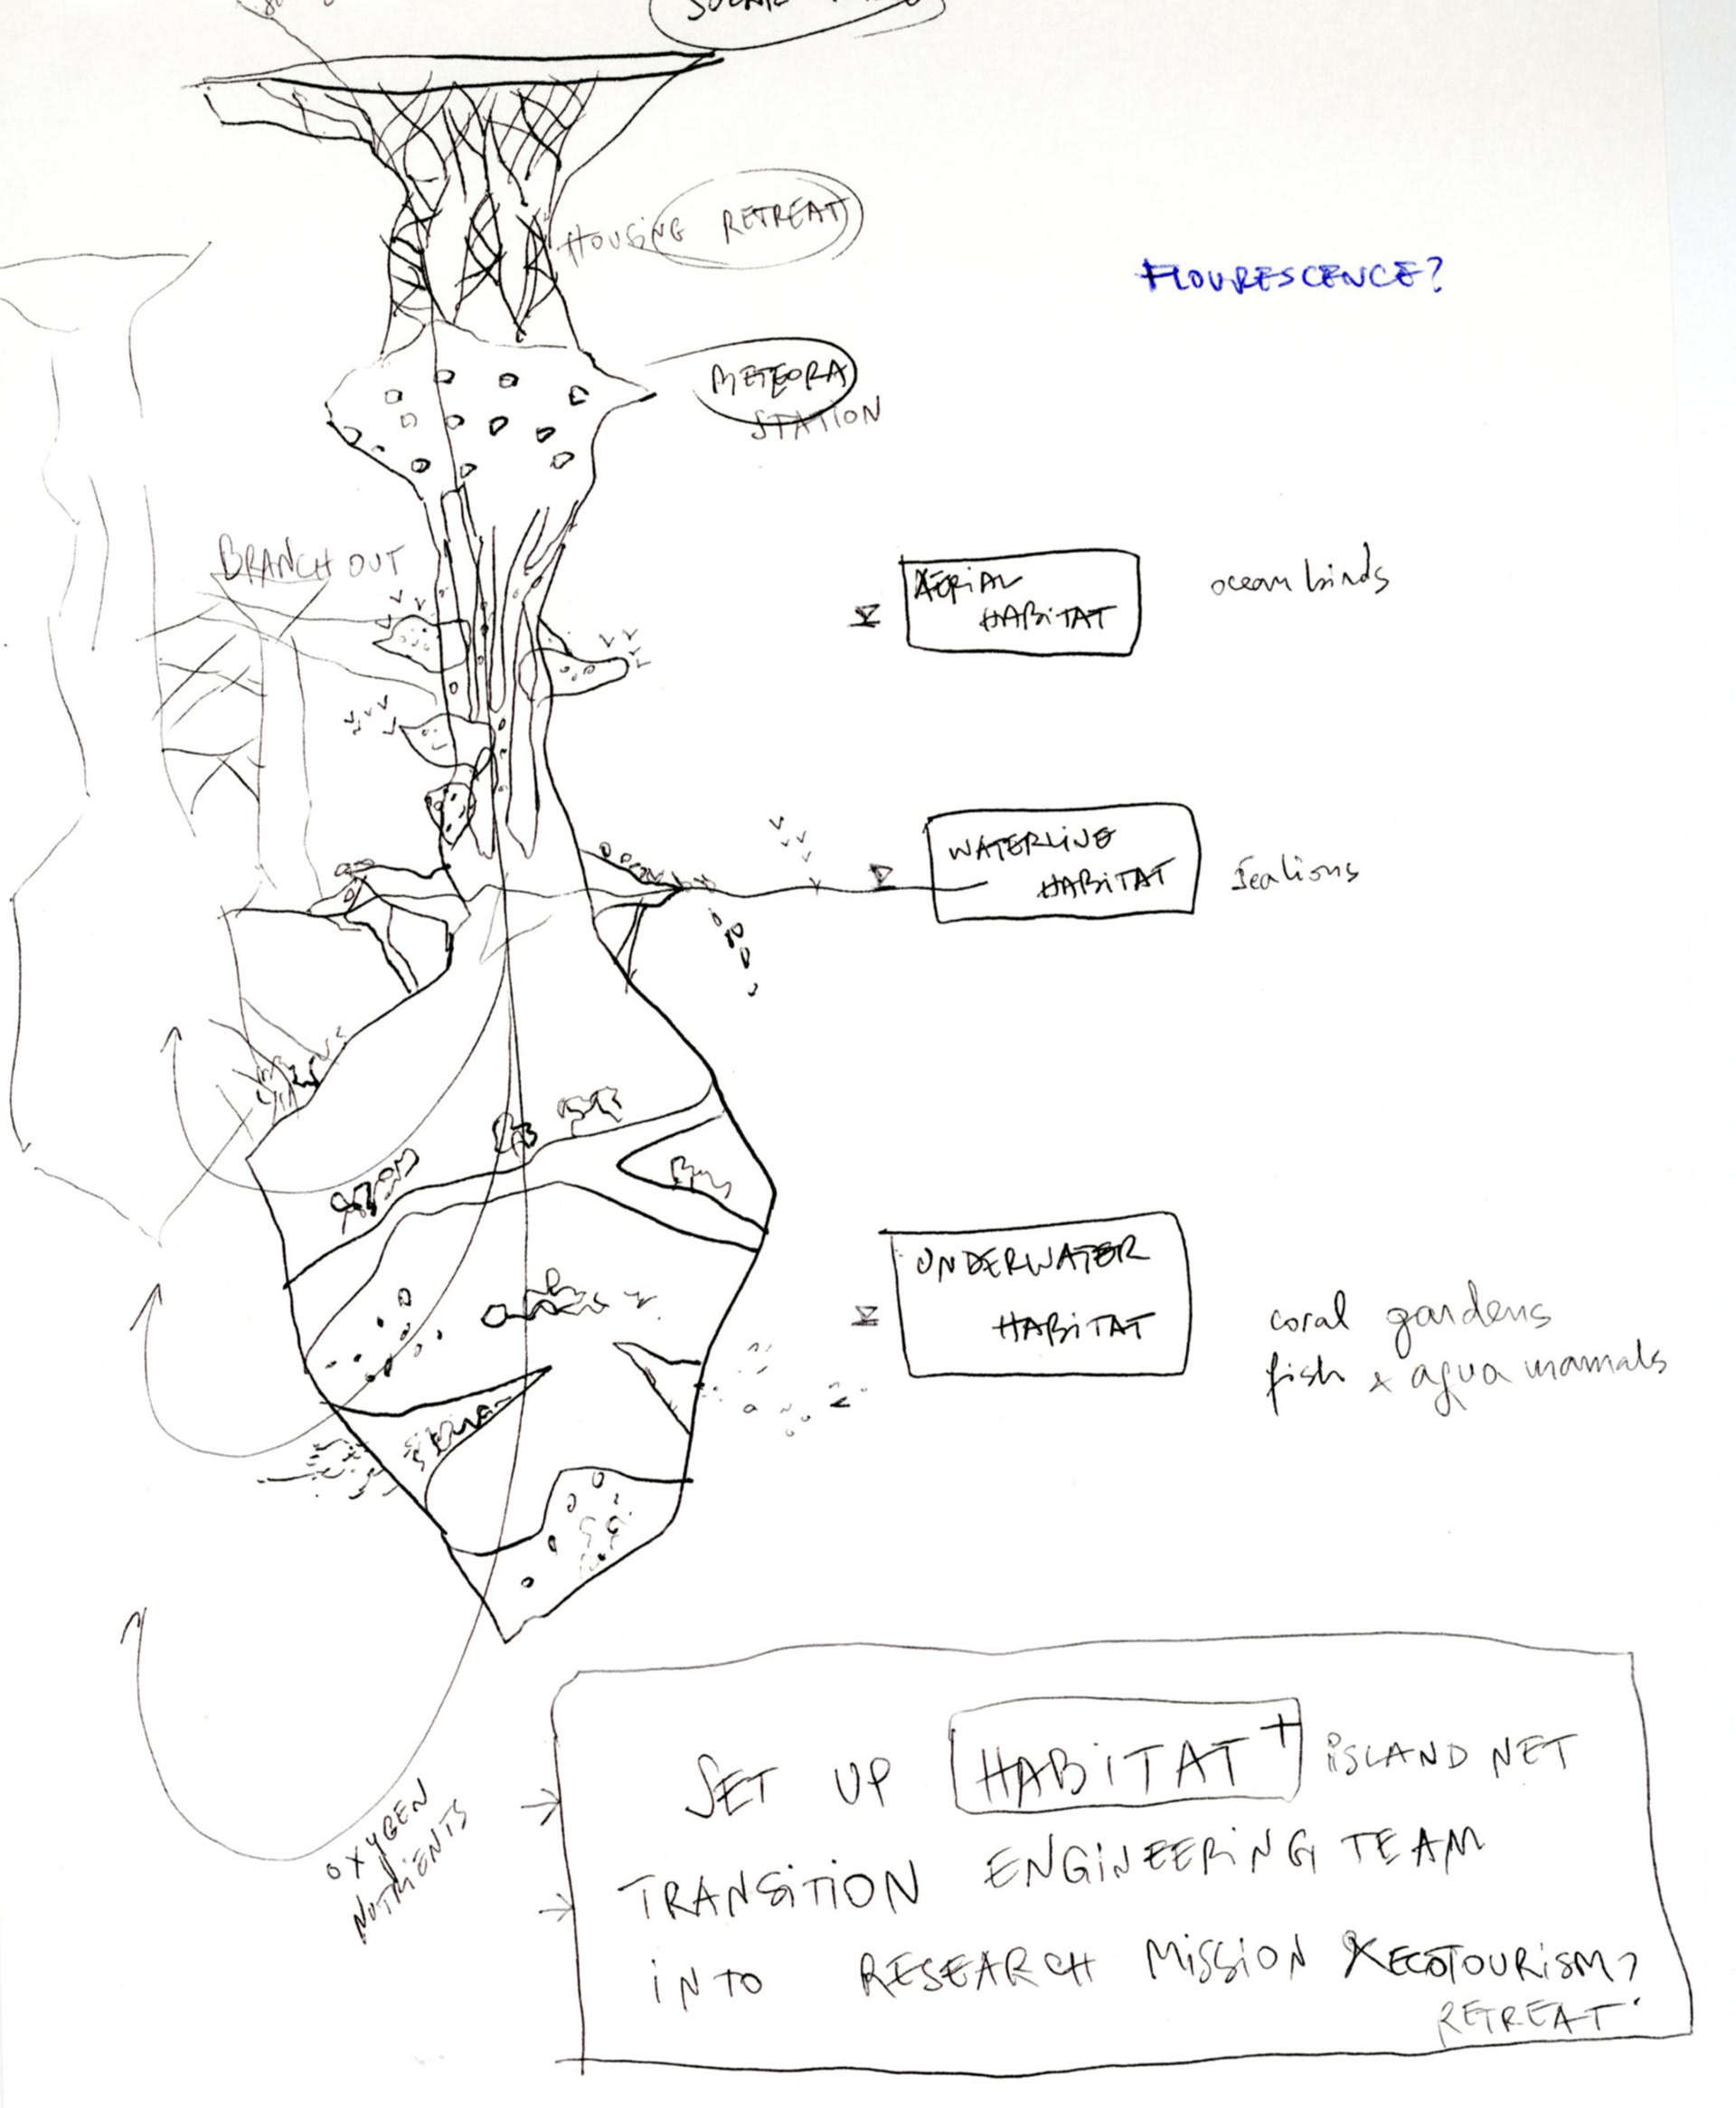 HOUSING RETREAT
FLOURESCENCE?
METEORA
STATION
BRANCH OUT
AERIAL
HABITAT
ocean birds
WATERLINE
HABITAT
sealions
UNDERWATER
HABITAT
coral gardens
fish & aqua mamals
OXYGEN
NUTRIENTS
SET UP HABITAT+ ISLAND NET
TRANSITION ENGINEERING TEAM
INTO RESEARCH MISSION & ECOTOURISM?
RETREAT